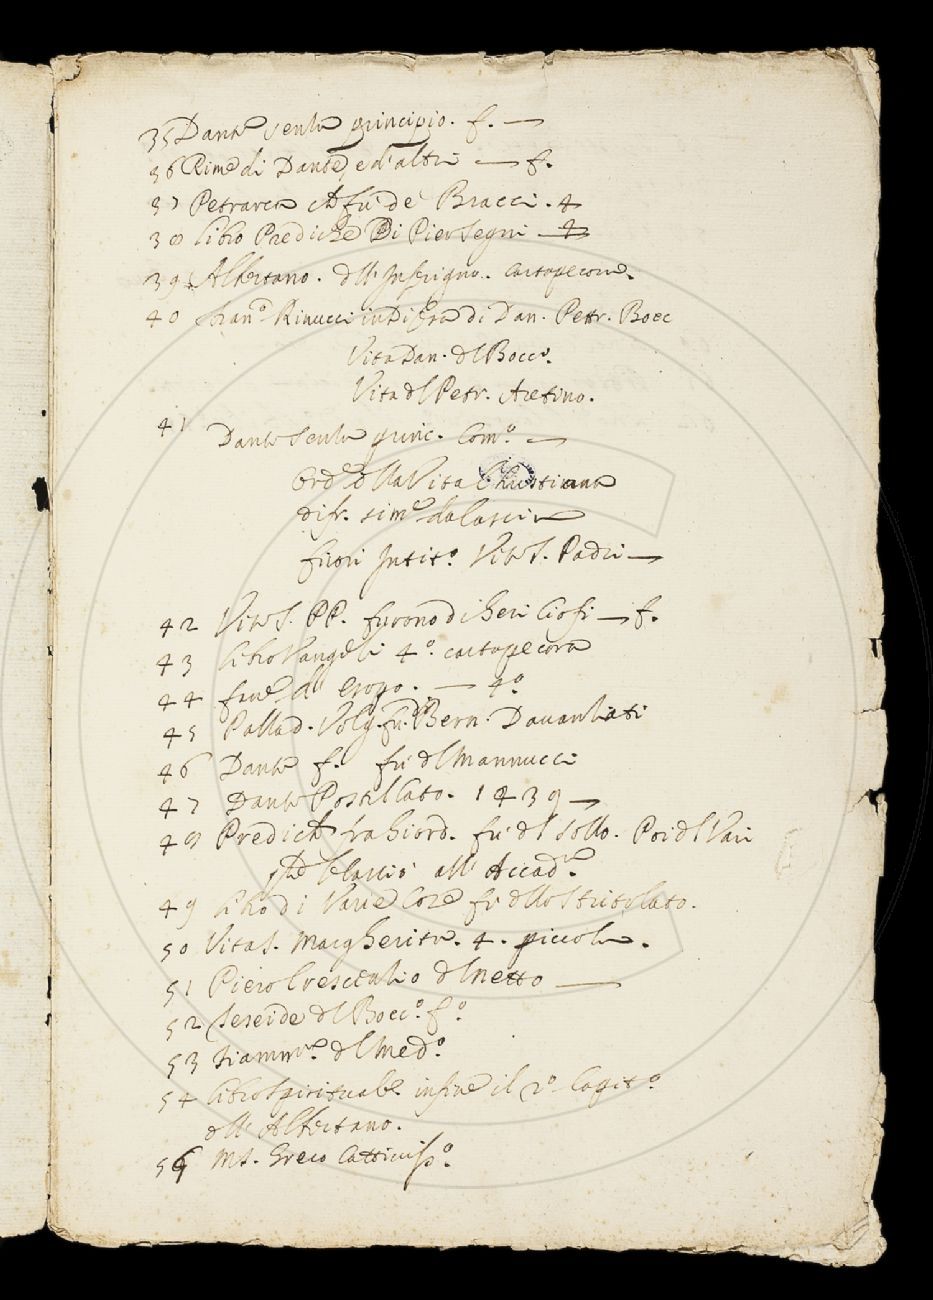 35 Dante senza principio. f. —
36 Rime di Dante, e d'altri — f.
37 Petrarca fu de Bracci. 4
38 Libro Prediche Di Pier Segni — 4
39 Albertano. dll' Inferigno. cartapecora.
40 Rinucci in Dan. Petr. Bocc
Vita Dan. dl Bocc.
Vita dl Petr. Aretino.
41 Dante senza princ. Com.º —
Ord.e dlla Vita Christiana
fuori Intit.º Vite S. Padri —
42 Vite S. PP. furono di — f.
43 Libro Vangeli 4.º cartapecora
44 — 4º
45 Pallad. Volg. fu di Bern. Davanzati
46 Dante f. fu dl Mannucci
47 Dante Postillato. 1439 —
48 Prediche fra Giord. fu dl Sollo. Poi dl Vai
che le lasciò all' Accad.a
49 Libro di Varie Cose fu dllo Stritolato.
50 Vita S. Margherita. 4. piccola.
51 Piero Crescenzio dl Netto —
52 Teseide dl Bocc.º fº
53 Fiamm.a dl Med.º
54 Libro Spirituale in fine il 2º Capit.º
dll' Albertano.
56 MS. Greco Cattiviss.º